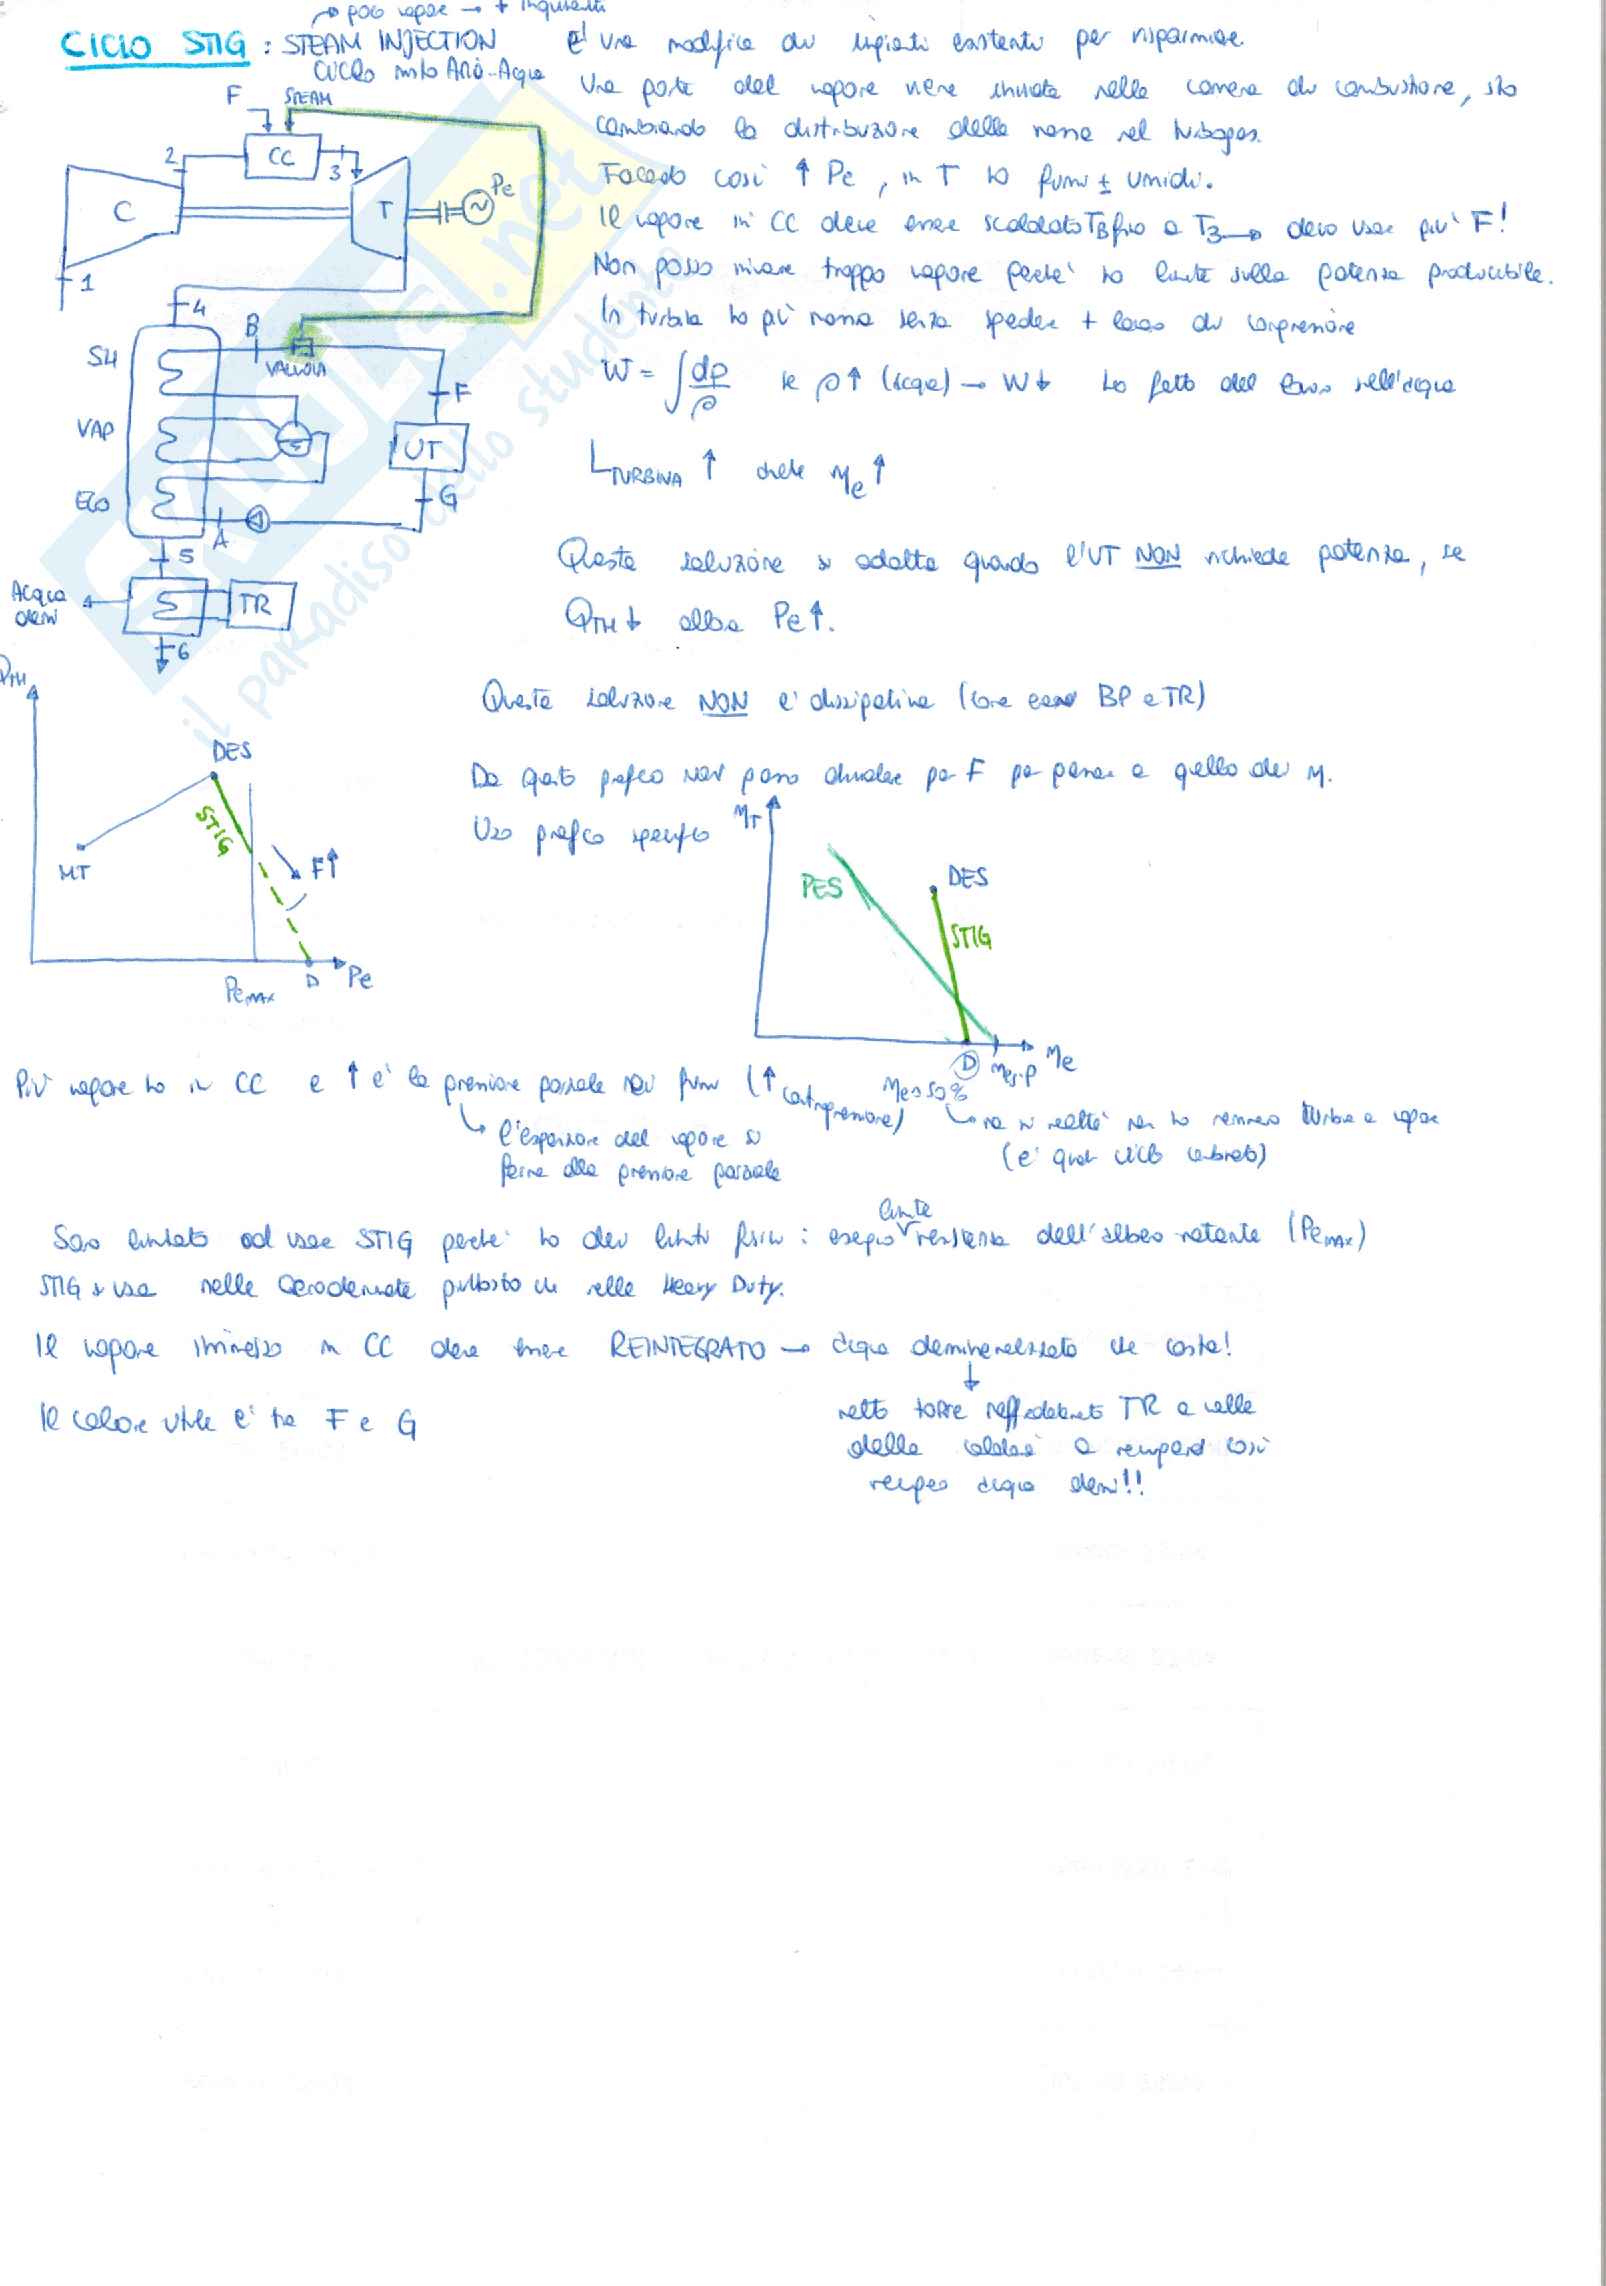 poco vapore → + inquinanti
CICLO STIG : STEAM INJECTION
CICLO misto ARIA-Acqua
E' una modifica di impianti esistenti per risparmiare.
Una parte del vapore viene inviata nella camera di combustione, sto
cambiando la distribuzione delle massa nel turbogas.
Facendo così ↑ Pe, in T ho fumi ± umidi.
Il vapore in CC deve essere scaldato TB fino a T3 → devo usare più F!
Non posso inviare troppo vapore perché ho limite sulla potenza producibile.
In turbina ho più massa senza spendere + lavoro di compressione
W = ∫ dp/ρ se ρ↑ (acqua) → W↓ ho fatto del lavoro sull'acqua
L TURBINA ↑ anche ηe ↑
Questa soluzione si adotta quando l'UT NON richiede potenza, se
QTH↓ allora Pe↑.
Questa soluzione NON è dissipativa (come erano BP e TR)
Da questo grafico non posso dividere per F per passare a quello dei η.
Uso grafico specifico
F
STEAM
CC
2
3
C
T
Pe
1
4
B
SH
VALVOLA
F
VAP
UT
G
ECO
A
5
Acqua
demi
TR
6
QTH
DES
STIG
MT
F↑
Pe MAX
D
Pe
ηT
PES
DES
STIG
D
ηes.p
ηe
Più vapore ho in CC e ↑ è la pressione parziale nei fumi (↑ contropressione)
l'espansione del vapore si
ferma alla pressione parziale
ηe≃50%
ma in realtà non ho nemmeno turbina a vapore
(è quasi ciclo combinato)
Sono limitato ad usare STIG perché ho dei limiti fisici : esempio limite resistenza dell'albero rotante (Pe MAX)
STIG si usa nelle Aeroderivate piuttosto che nelle Heavy Duty.
Il vapore immesso in CC deve essere REINTEGRATO → acqua demineralizzata che costa!
metto torre raffreddamento TR a valle
della caldaia a recupero così
recupero acqua demi!!
Il calore utile è tra F e G